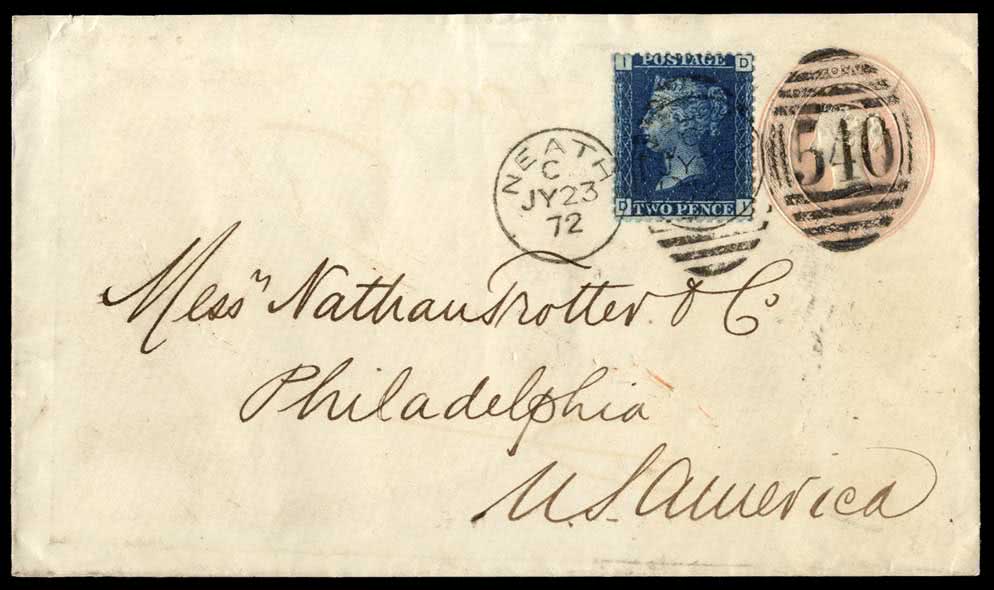 I POSTAGE D
D TWO PENCE I
NEATH
C
JY23
72
540
Messrs Nathan Trotter & Co
Philadelphia
U.S. America